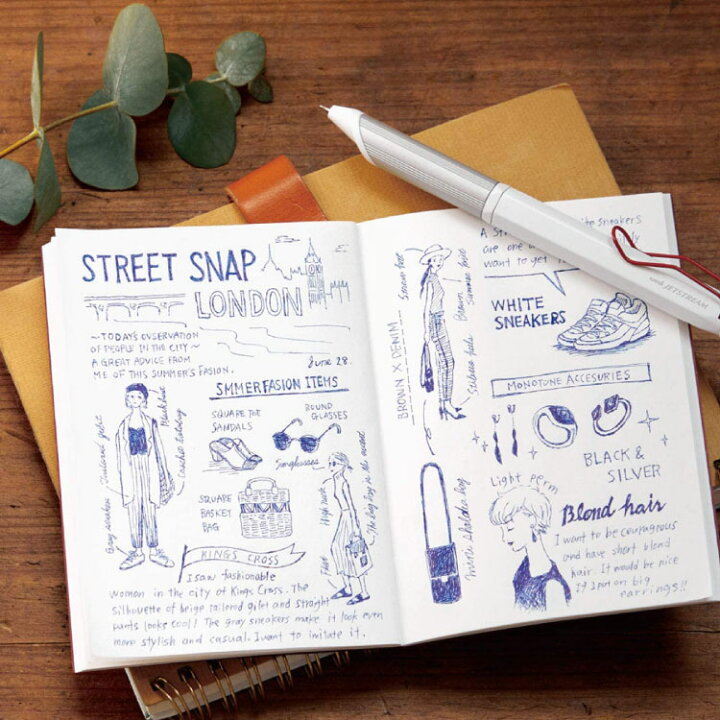 STREET SNAP
LONDON
~TODAY'S OVSERVATION
OF PEOPLE IN THE CITY~
A GREAT ADVICE FROM
ME OF THIS SUMMER'S FASION.
June 28.
SMMER FASION ITEMS
SQUARE TOE
SANDALS
ROUND
GLASSES
Sunglasses
SQUARE
BASKET
BAG
Tailored gilet
Gray sneakers
KINGS CROSS
I saw fashionable
women in the city of Kings Cross. The
silhouette of beige tailored gilet and straight
pants looks cool! The gray sneakers make it look even
more stylish and casual. I want to imitate it.
BROWN X DENIM
Brown
A
sneakers
are one
want to get
WHITE
SNEAKERS
MONOTONE ACCESURIES
BLACK &
SILVER
Light perm
Blond hair
I want to be courageous
and have short blond
hair. It would be nice
if I put on big
earrings!!
JETSTREAM